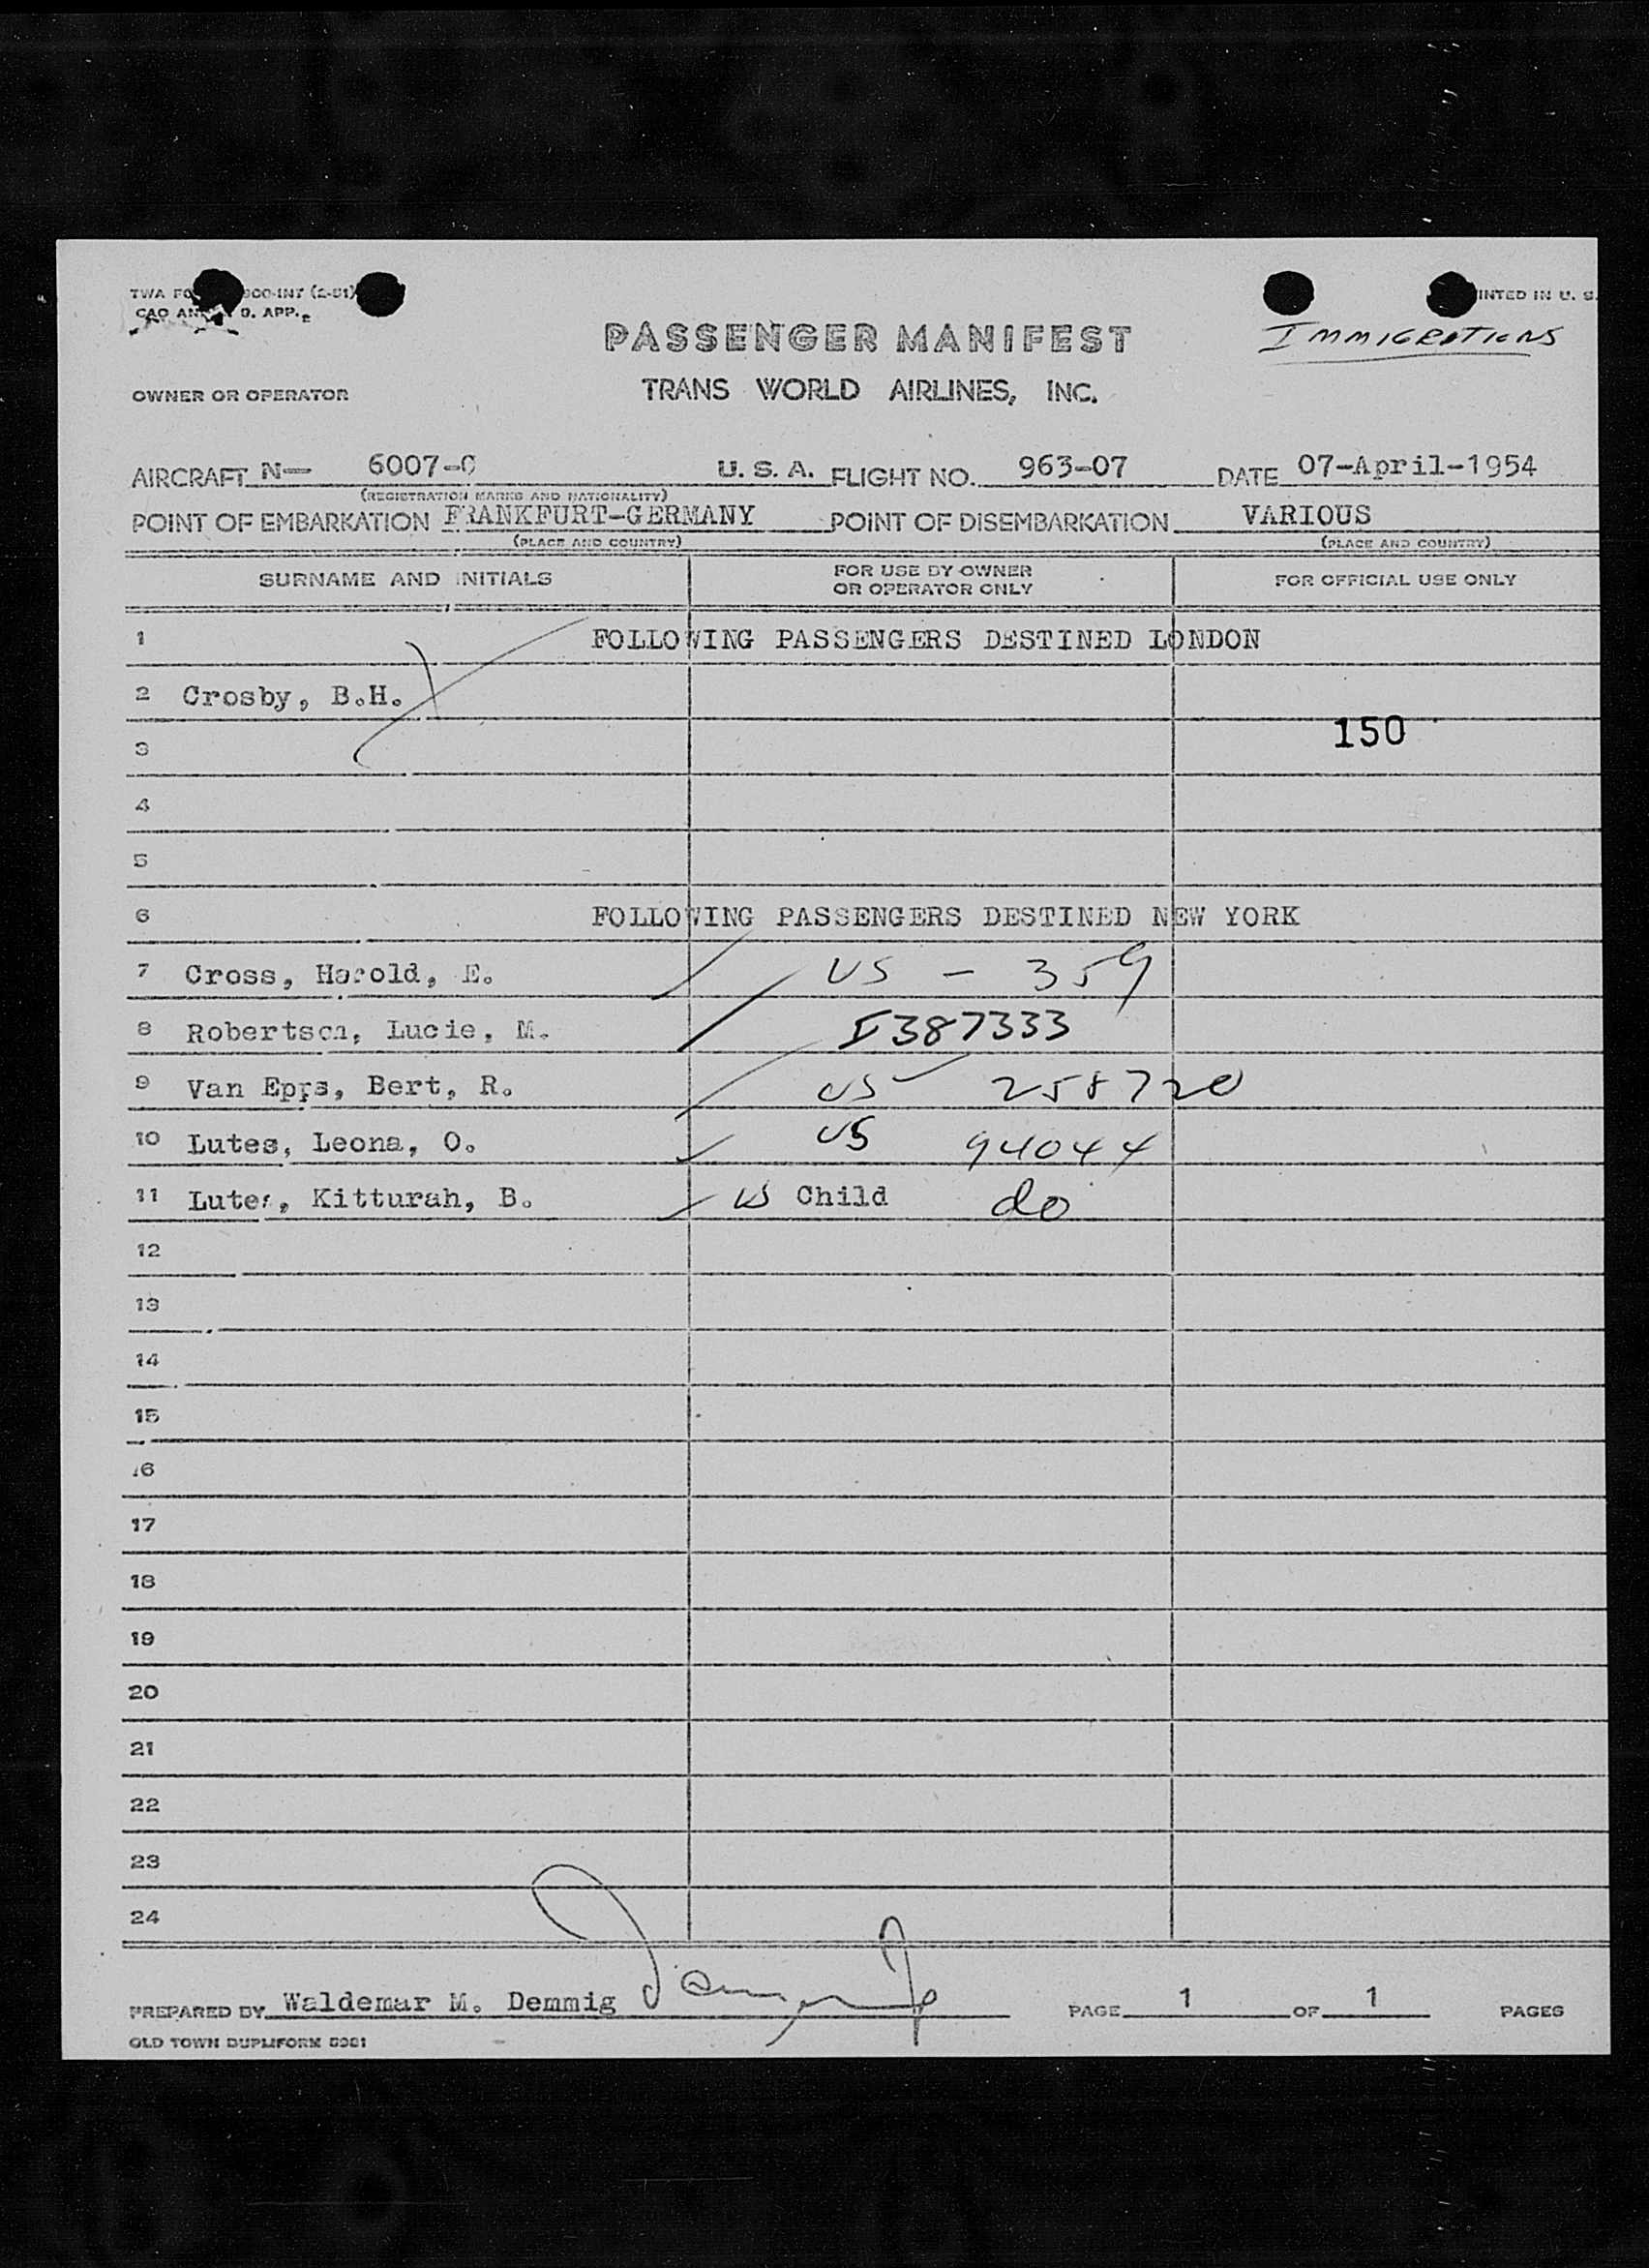 TWA FO 900-INT (2-51)
INTED IN U. S.
CAO AN 9. APP. 2
IMMIGRATIONS
PASSENGER MANIFEST
OWNER OR OPERATOR TRANS WORLD AIRLINES, INC.
AIRCRAFT N— 6007-C U. S. A. FLIGHT NO. 963-07 DATE 07-April-1954
(REGISTRATION MARKS AND NATIONALITY)
POINT OF EMBARKATION FRANKFURT-GERMANY POINT OF DISEMBARKATION VARIOUS
(PLACE AND COUNTRY) (PLACE AND COUNTRY)
SURNAME AND INITIALS FOR USE BY OWNER OR OPERATOR ONLY FOR OFFICIAL USE ONLY
1 FOLLOWING PASSENGERS DESTINED LONDON
2 Crosby, B.H.
3 150
4
5
6 FOLLOWING PASSENGERS DESTINED NEW YORK
7 Cross, Harold, E. US - 359
8 Robertson, Lucie, M. V387333
9 Van Epps, Bert, R. US 258720
10 Lutes, Leona, O. US 94044
11 Lutes, Kitturah, B. US Child do
12
13
14
15
16
17
18
19
20
21
22
23
24
PREPARED BY Waldemar M. Demmig PAGE 1 OF 1 PAGES
OLD TOWN DUPLIFORM 5981